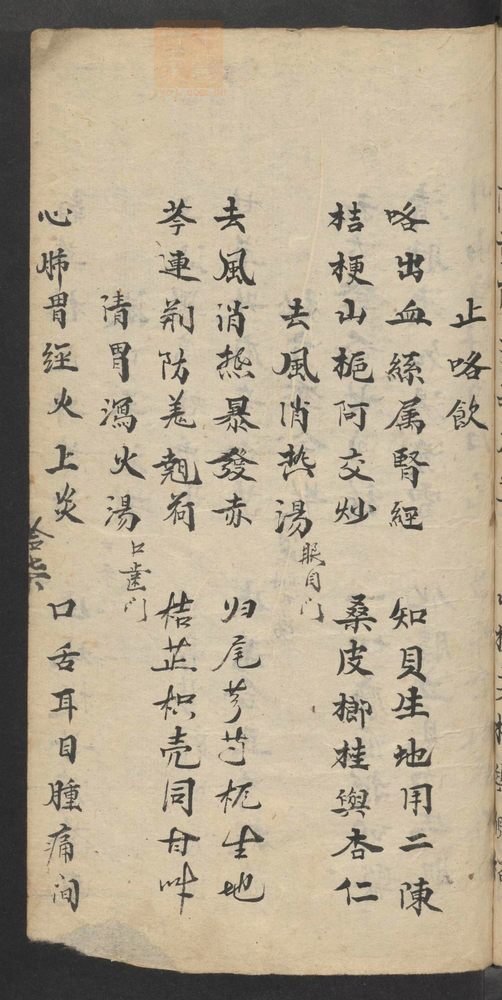 止咯飲
咯出血絲属腎經 知貝生地用二陳
桔梗山梔阿交炒 桑皮榔桂與杏仁
去風消热湯 眼目门
去風消热暴發赤 归尾芍芎栀生地
芩連荊防羌翹荷 桔芷枳壳同甘
清胃瀉火湯 口歯门
心肺胃經火上炎 口舌耳目腫痛间